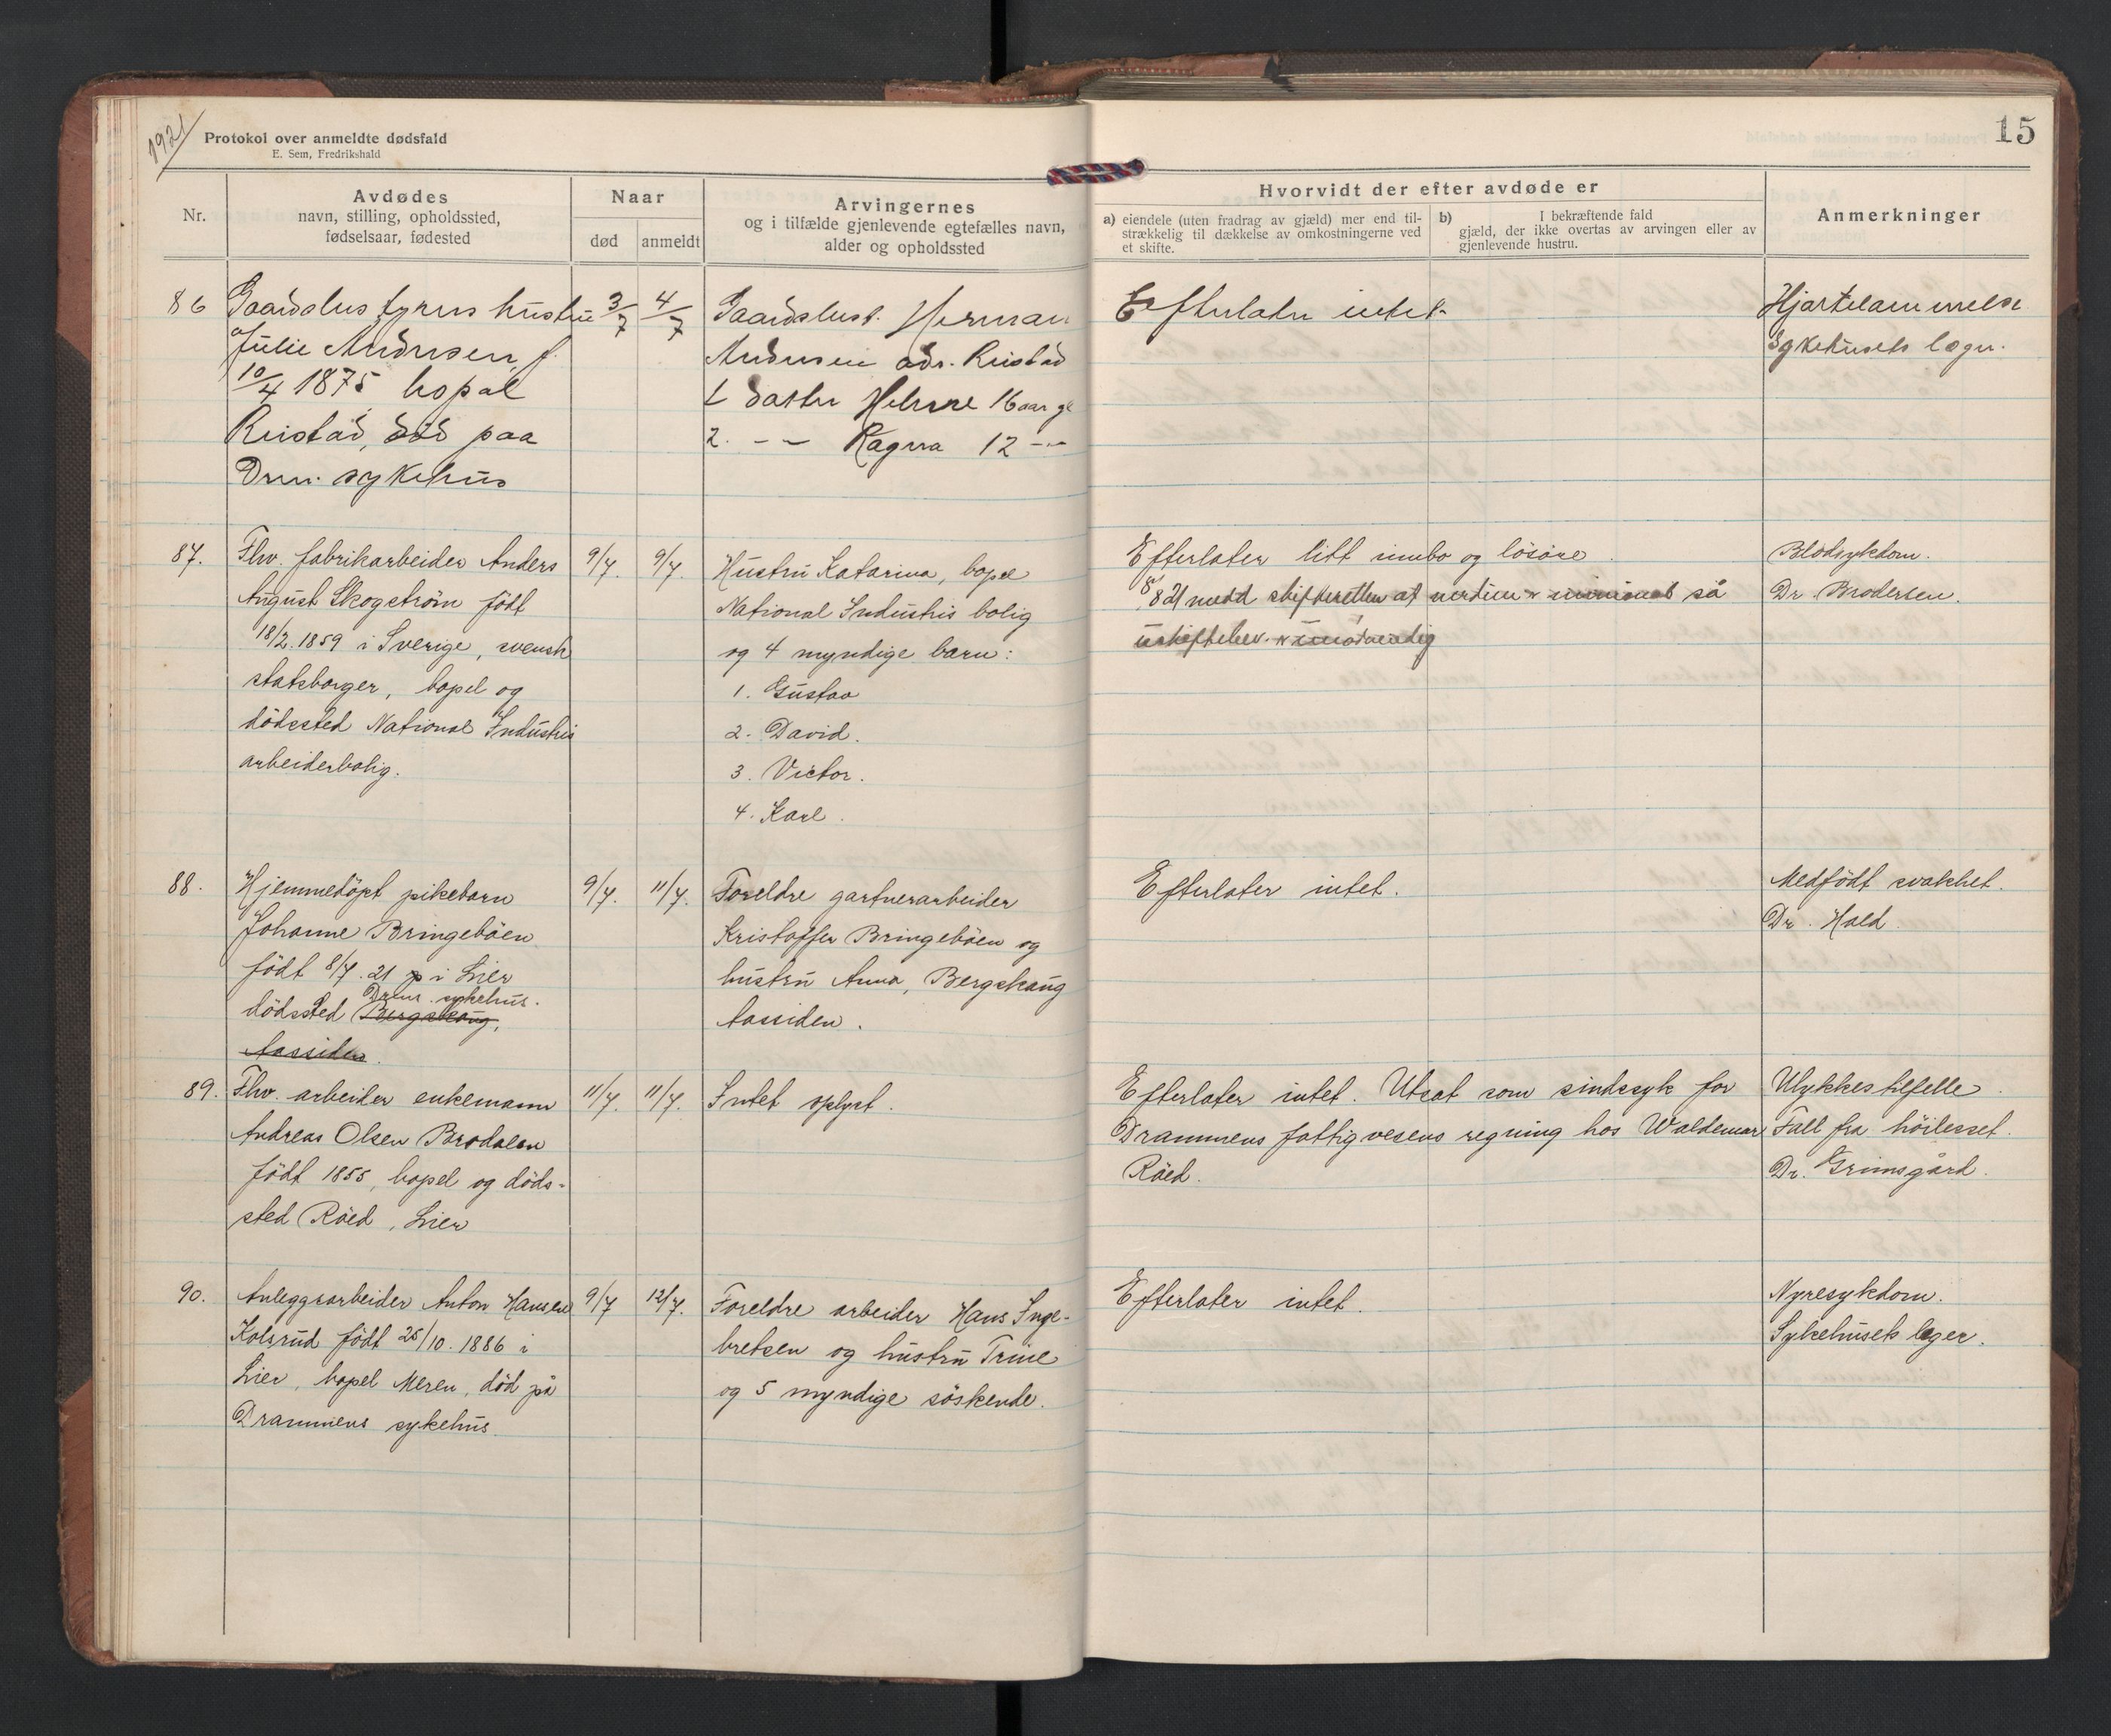 1921
Protokol over anmeldte dødsfald
E. Sem, Fredrikshald
15
Nr.
Avdødes
navn, stilling, opholdssted,
fødselsaar, fødested
Naar
død
anmeldt
Arvingernes
og i tilfælde gjenlevende egtefælles navn,
alder og opholdssted
Hvorvidt der efter avdøde er
a) eiendele (uten fradrag av gjæld) mer end til-
strækkelig til dækkelse av omkostningerne ved
et skifte.
b) I bekræftende fald
gjæld, der ikke overtas av arvingen eller av
gjenlevende hustru.
Anmerkninger
86
Gaardsbestyrers hustru
Julie Andersen f.
10/4 1875 bopæl
Reistad, død paa
Drm. sykehus
3/7
4/7
Gaardsbest. Herman
Andersen adr. Reistad
1 datter Helene 16 aar gl
2. -- Ragna 12 --
Efterlater intet.
Hjertelammelse
Sykehusets læger.
87.
Fhv. fabrikarbeider Anders
August Skogström født
18/2.1859 i Sverige, svensk
statsborger, bopel og
dödssted National Industris
arbeiderbolig.
9/7.
9/7.
Hustru Katarina, bopel
National Industris bolig
og 4 myndige barn:
1. Gustav
2. David.
3. Victor.
4. Karl.
Efterlater litt innbo og lösöre.
8/8 21 medd skifteretten at verdien er minimal så
uskiftebev. er unödvendig
Blodsykdom.
Dr. Brodersen.
88.
Hjemmedöpt pikebarn
Johanne Bringeböen
födt 8/7.21 i Lier
Drm. sykehus.
dödssted Bergskaug,
Aassiden.
9/7.
11/7.
Foreldre gartnerarbeider
Kristoffer Bringeböen og
hustru Anna, Bergskaug
Aassiden.
Efterlater intet.
Medfödt svakhet.
Dr. Hald.
89.
Fhv. arbeider enkemann
Andreas Olsen Brodalen
födt 1855, bopel og döds-
sted Röed, Lier
11/7.
11/7.
Intet oplyst.
Efterlater intet. Utsat som sindssyk for
Drammens fattigvesens regning hos Waldemar
Röed.
Ulykkestilfelle
Fall fra höilesset.
Dr. Grimsgård.
90.
Anleggsarbeider Anton Hansen
Kolsrud födt 25/10.1886 i
Lier, bopel Meren, död på
Drammens sykehus.
9/7
12/7.
Foreldre arbeider Hans Inge-
bretsen og hustru Trine
og 5 myndige söskende.
Efterlater intet.
Nyresykdom.
Sykehusets leger.